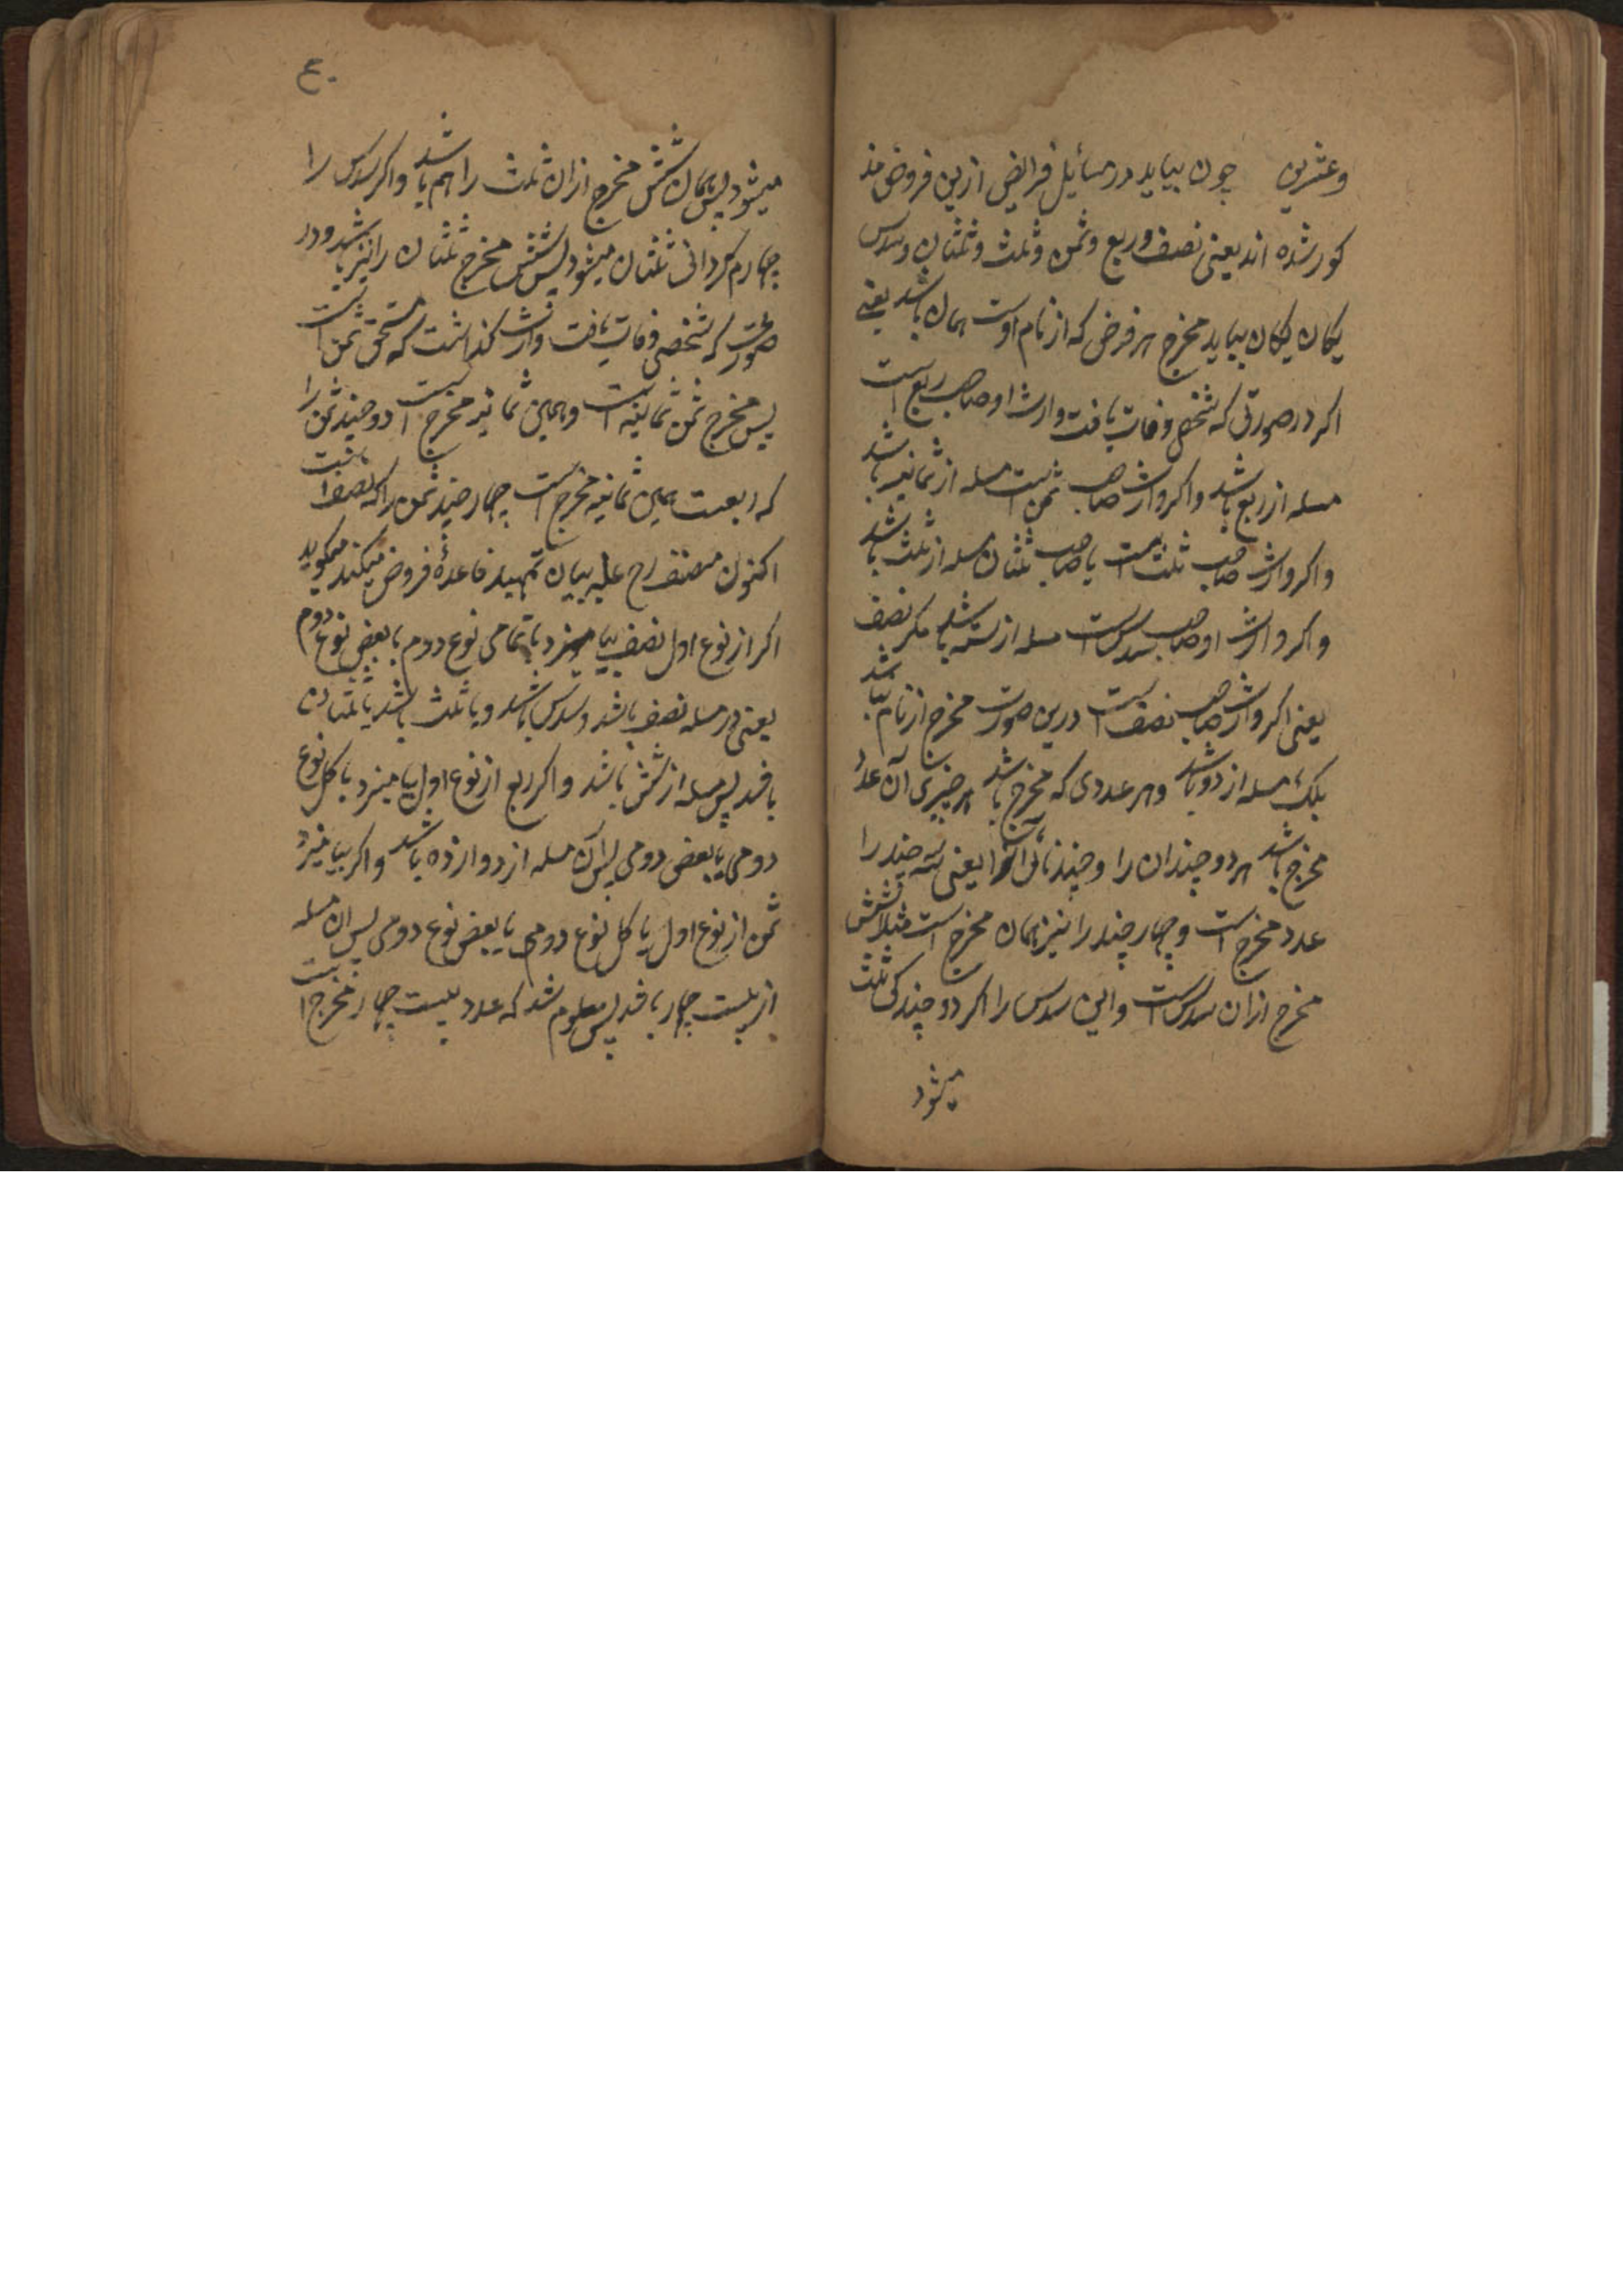 وعشرین چون بیاید در مسائیل فرائض ازین فروض مذ
کور شده اند یعنی نصف و ربع و ثمن و ثلث و ثلثان و سدس
یکان یکان بیاید مخرج هر فرض که از نام اوست همان باشد یعنی
اکر در صورتی که شخصی وفات یافت وارث او صاحب ربع است
مسله از ربع باشد و اکر وارث صاحب ثمن است مسله از ثمانیه باشد
و اکر وارث صاحب ثلث است یا صاحب ثلثان مسله از ثلث باشد
و اکر وارث او صاحب سدس است مسله از سته باشد مکر نصف
یعنی اکر وارث صاحب نصف است درین صورت مخرج از نام نباشد
بلکه مسله از دو باشد و هر عددی که مخرج باشد هر چیزی آن عدد
مخرج باشد هر دو چندان را و چند یعنی سه چند را
عدد مخرج است و چهار چند را نیز همان مخرج است مثلا شش
مخرج ازان سدس است و این سدس را اکر دو چند کی ثلث
میشود
ع
میشود پس همان شش مخرج ازان ثلث را هم باشد و اکر سدس را
چهارم کردانی ثلثان میشود پس شش مخرج ثلثان را نیز باشد و در
صورت که شخصی وفات یافت وارث کذاشت که مستحق ثمن است
پس مخرج ثمن ثمانیه است و همین ثمانیه مخرج است دو چند ثمن را
که ربعست همین ثمانیه مخرج است چهار چند ثمن را که نصف است
اکنون مصنف رح علیه بیان تمهید قاعدۀ فروض میکند میکوید
اکر از نوع اول نصف بیامیزد با تمامی نوع دوم یا بعض نوع دوم
یعنی در مسله نصف باشد و سدس باشد و یا ثلث باشد یا ثلثان
باشد پس مسله از شش باشد و اکر ربع از نوع اول بیامیزد با کل نوع
دومی یا بعض دومی پس آن مسله از دوازده باشد و اکر بیامیزد
ثمن از نوع اول با کل نوع دومی یا بعض نوع دومی پس ان مسله
از بیست چهار باشد پس معلوم شد که عدد بیست چهار مخرج است